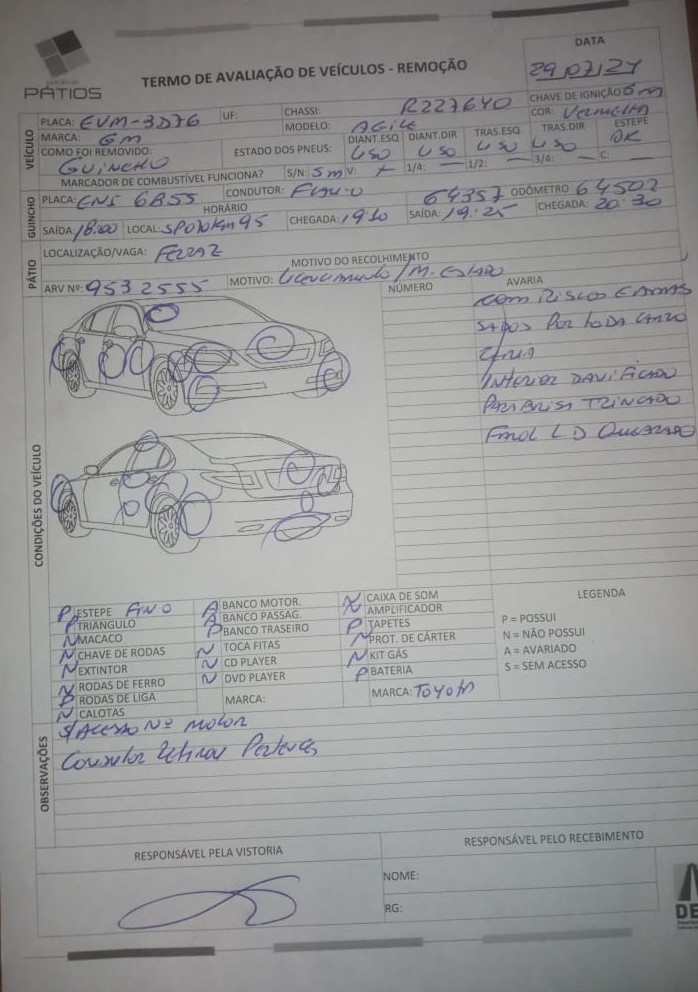 PÁTIOS
TERMO DE AVALIAÇÃO DE VEÍCULOS - REMOÇÃO
DATA
29/07/24
VEÍCULO
PLACA: EVM-3D76 UF: CHASSI: R227640 CHAVE DE IGNIÇÃO: Sim
MARCA: GM MODELO: AGILE COR: Vermelha
COMO FOI REMOVIDO: GUINCHO ESTADO DOS PNEUS: DIANT.ESQ USO DIANT.DIR USO TRAS.ESQ USO TRAS.DIR USO ESTEPE OK
MARCADOR DE COMBUSTÍVEL FUNCIONA? S/N: Sim V: 1/4: — 1/2: — 3/4: — C:
GUINCHO
PLACA: ENS 6B55 CONDUTOR: 64357 ODÔMETRO 64502
HORÁRIO
SAÍDA: 18:00 LOCAL: SP070 Km 95 CHEGADA: 19:10 SAÍDA: 19:25 CHEGADA: 20:30
PÁTIO
LOCALIZAÇÃO/VAGA: FERRAZ
MOTIVO DO RECOLHIMENTO
ARV Nº: 9532555 MOTIVO: Licenciamento / M. Estado
CONDIÇÕES DO VEÍCULO
NÚMERO AVARIA
COM RISCOS E AMAS
SADOS POR TODA CARRO
CERIA
INTERIOR DANIFICADO
PARABRISA TRINCADO
FAROL L.D QUEBRADO
P ESTEPE FINO
P TRIANGULO
N MACACO
N CHAVE DE RODAS
N EXTINTOR
N RODAS DE FERRO
P RODAS DE LIGA
N CALOTAS
A BANCO MOTOR.
A BANCO PASSAG.
P BANCO TRASEIRO
N TOCA FITAS
N CD PLAYER
N DVD PLAYER
MARCA:
N CAIXA DE SOM
N AMPLIFICADOR
P TAPETES
N PROT. DE CÁRTER
N KIT GÁS
P BATERIA
MARCA: Toyota
LEGENDA
P = POSSUI
N = NÃO POSSUI
A = AVARIADO
S = SEM ACESSO
OBSERVAÇÕES
S/ ACESSO Nº MOTOR
Condutor Retirou Pertences
RESPONSÁVEL PELA VISTORIA
RESPONSÁVEL PELO RECEBIMENTO
NOME:
RG: